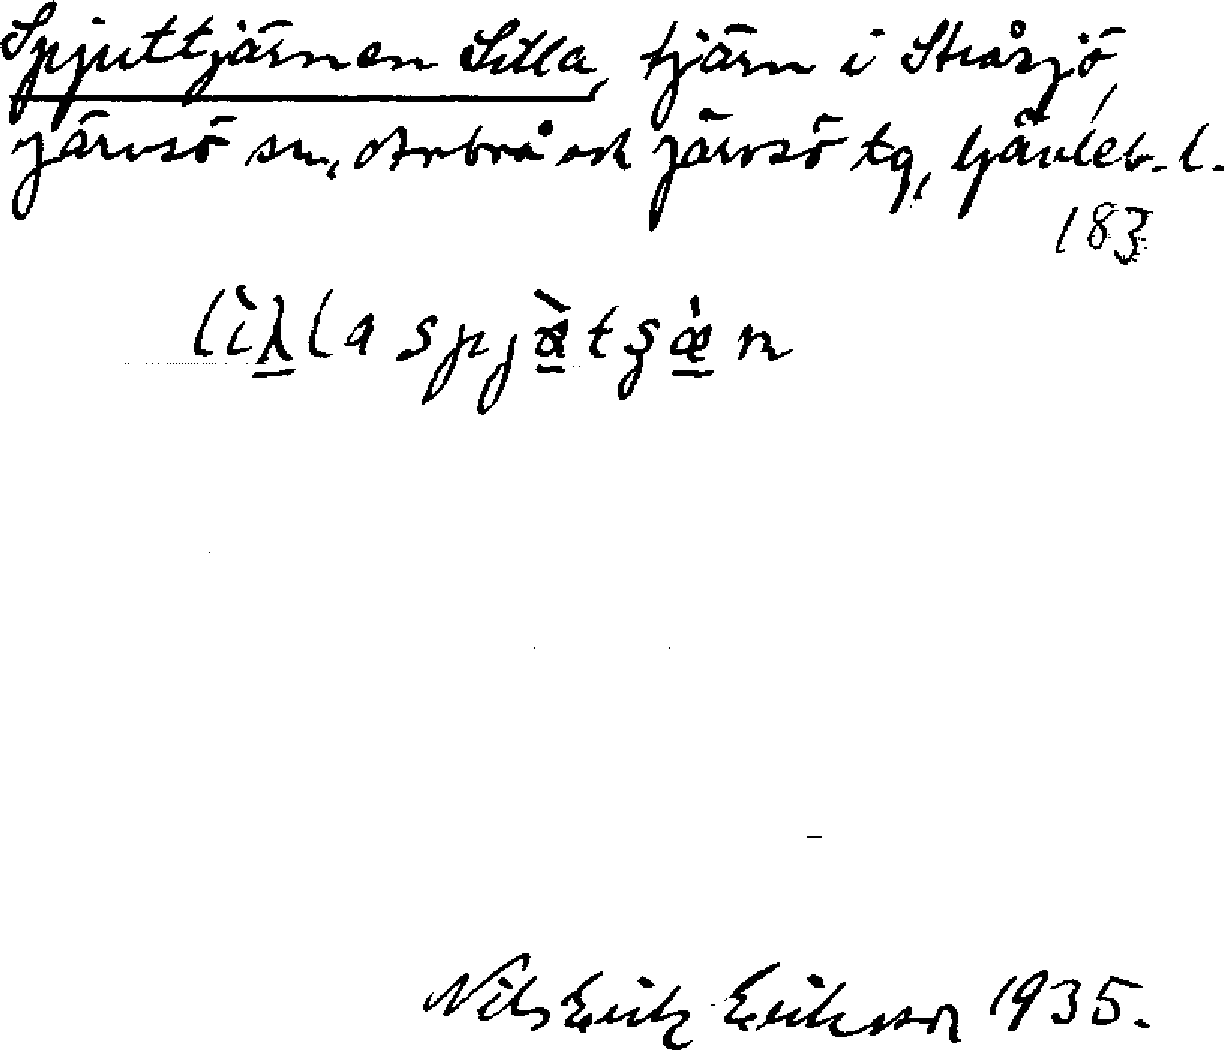 Spjuttjärnen Lilla, tjärn i Stråsjö,
Järvsö sn, Arbrå och Järvsö tg, Gävleb. l.
183
Nils Erik Eriksson 1935.